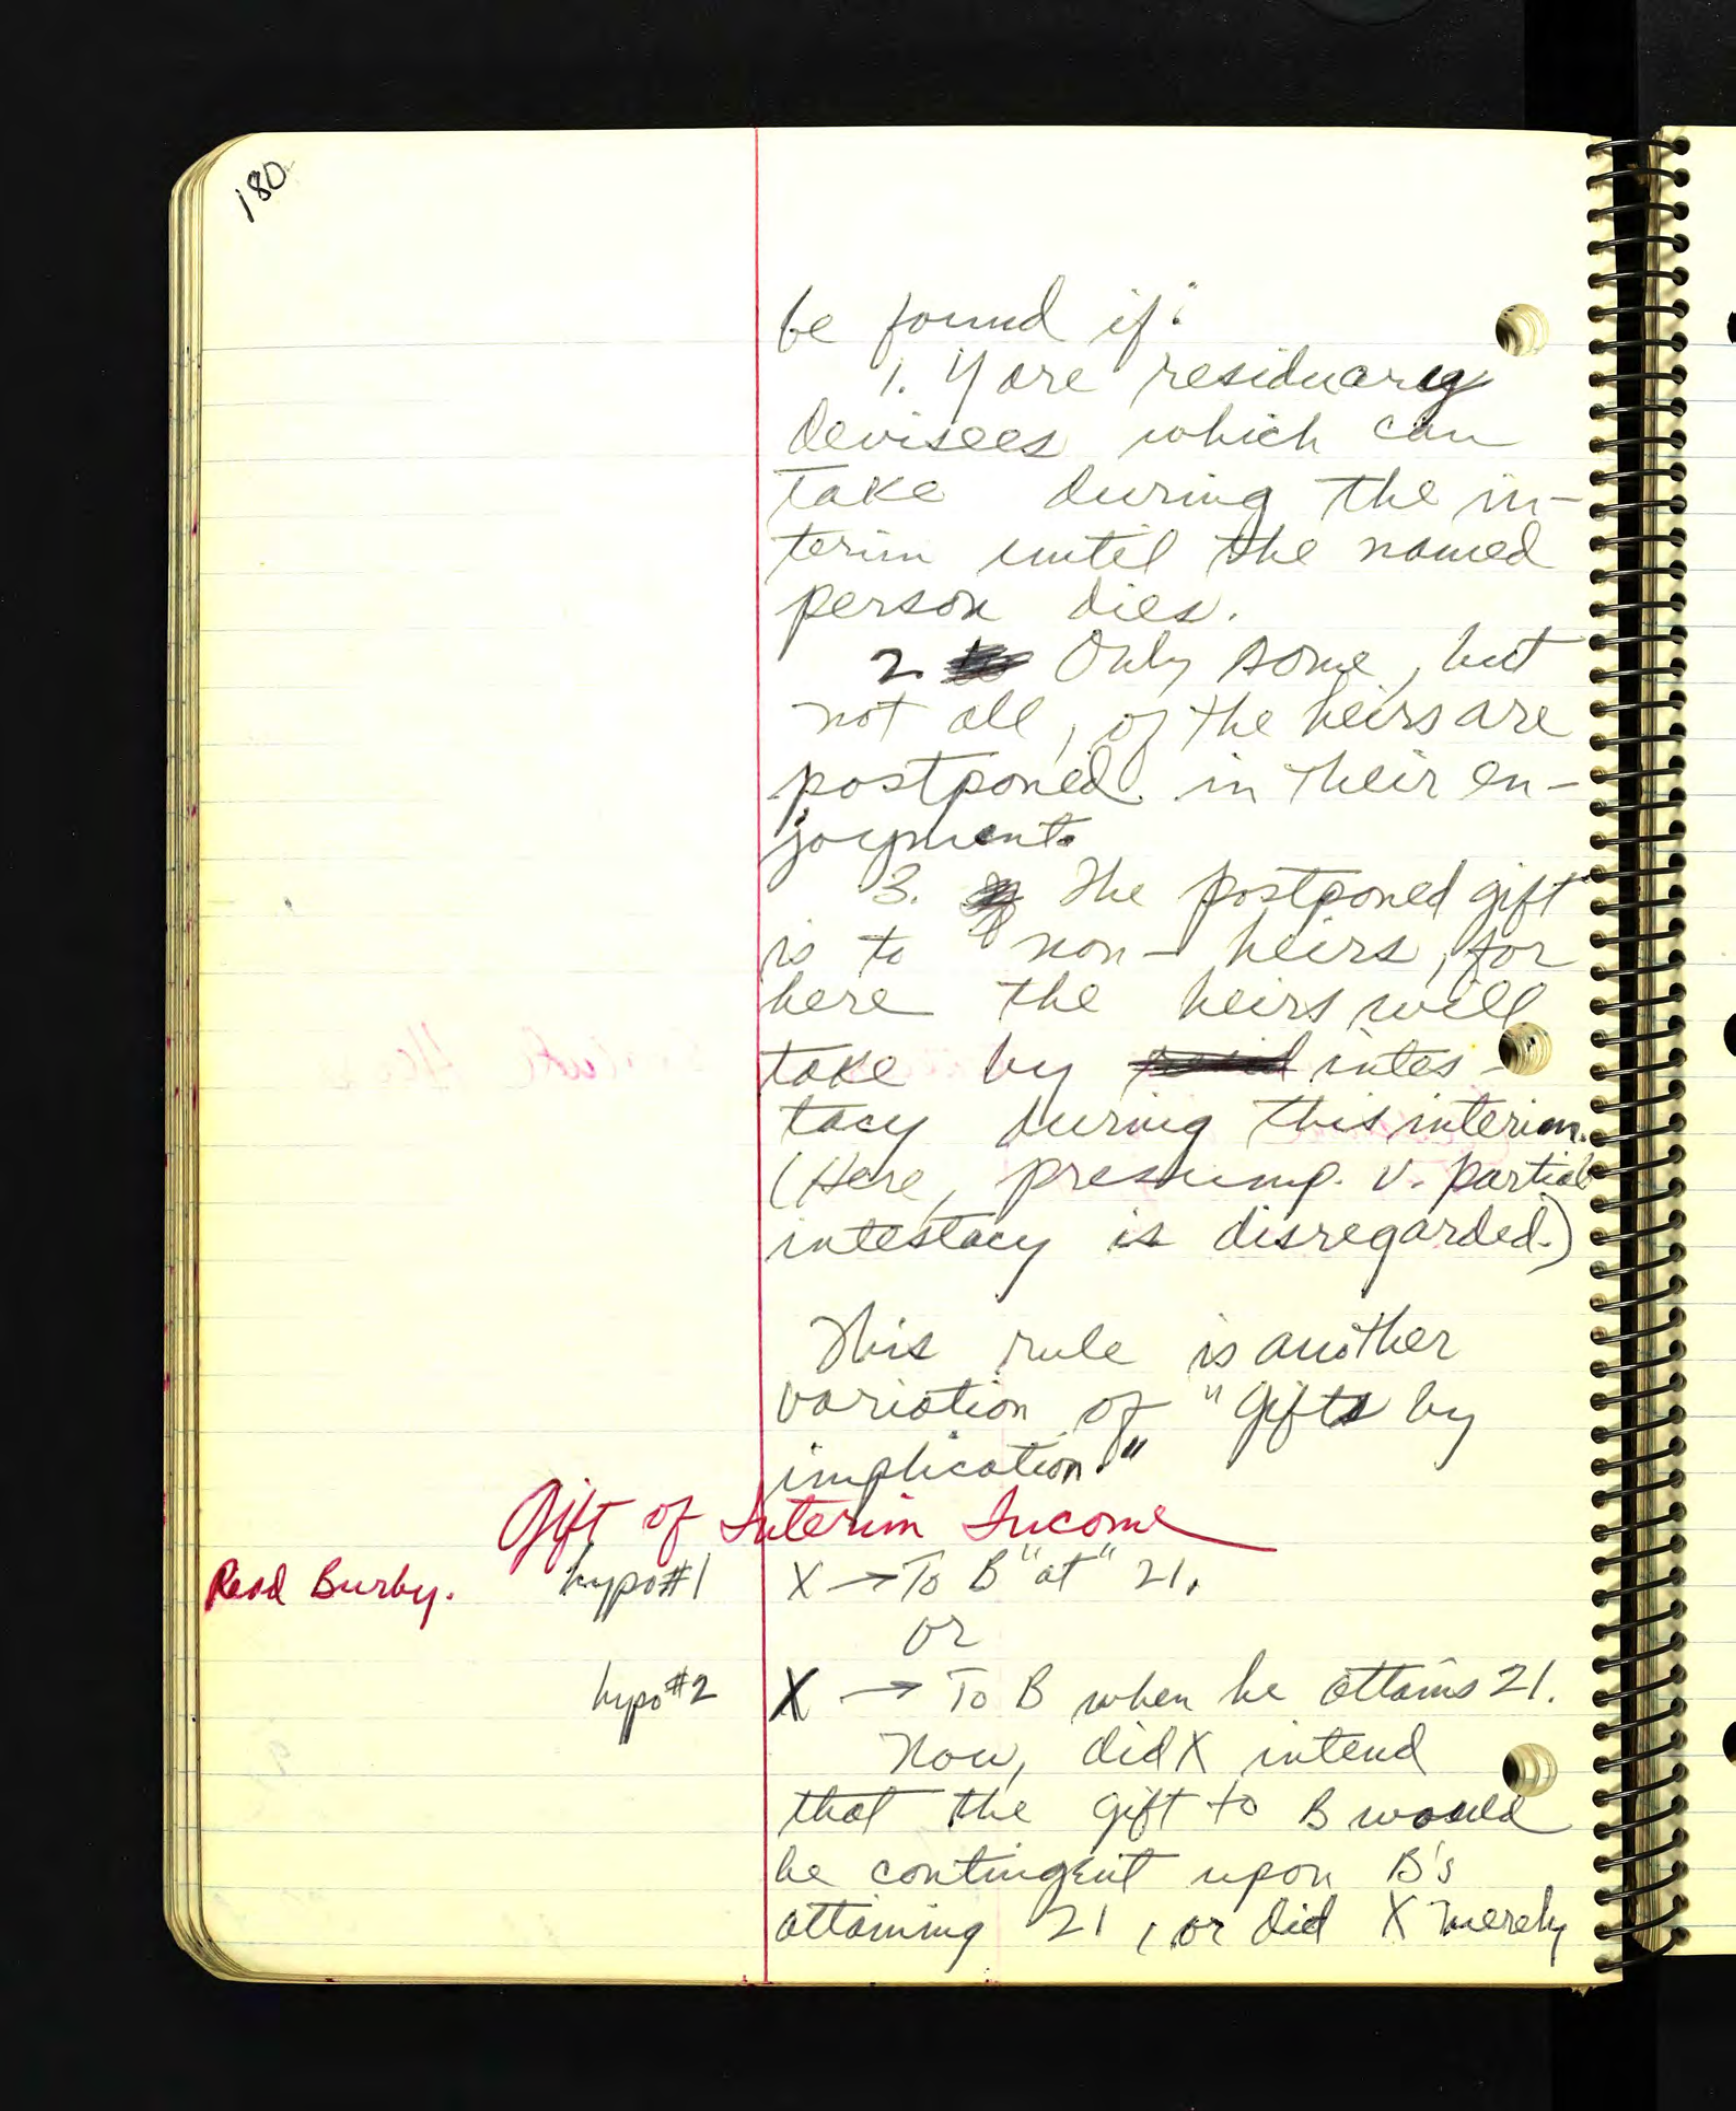 180
be found if:
1. Y are residuary
devisees which can
take during the in-
terim until the named
person dies.
2. Only some, but
not all, of the heirs are
postponed in their en-
joyment.
3. The postponed gift
is to non-heirs, for
here the heirs will
take by intes-
tacy during this interim.
(Here, presump. v. partial
intestacy is disregarded.)
This rule is another
variation of "Gifts by
implication."
Gift of Interim Income
Read Burby. hypo #1 X → To B "at" 21.
or
hypo #2 X → To B when he attains 21.
Now, did X intend
that the gift to B would
be contingent upon B's
attaining 21, or did X merely